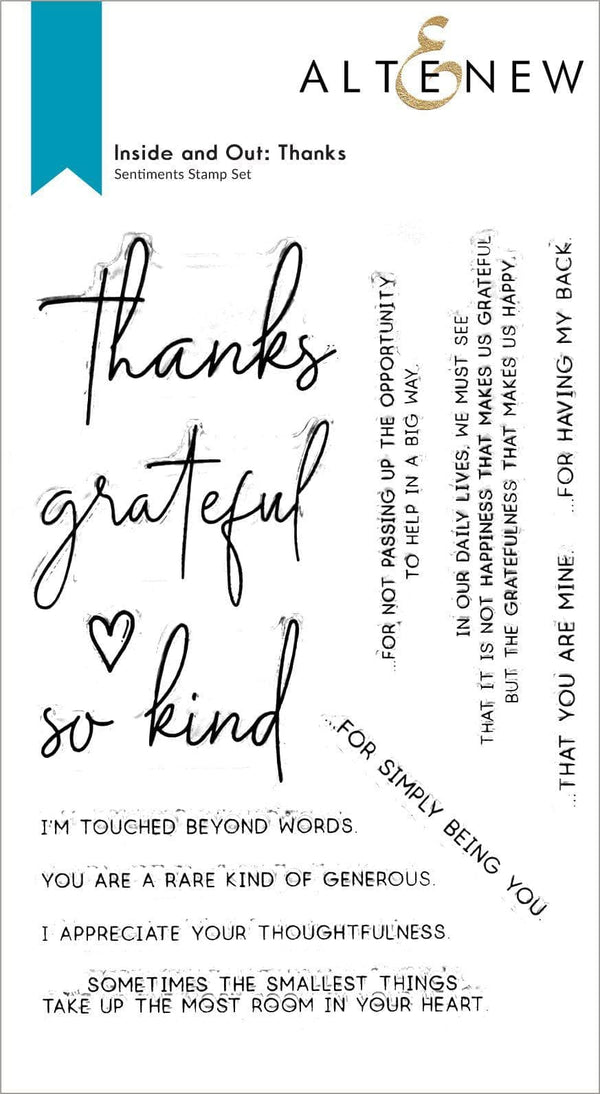 ALTENEW
Inside and Out: Thanks
Sentiments Stamp Set
thanks
grateful
so kind
...FOR NOT PASSING UP THE OPPORTUNITY
TO HELP IN A BIG WAY.
IN OUR DAILY LIVES, WE MUST SEE
THAT IT IS NOT HAPPINESS THAT MAKES US GRATEFUL
BUT THE GRATEFULNESS THAT MAKES US HAPPY.
...FOR HAVING MY BACK.
...THAT YOU ARE MINE.
...FOR SIMPLY BEING YOU.
I'M TOUCHED BEYOND WORDS.
YOU ARE A RARE KIND OF GENEROUS.
I APPRECIATE YOUR THOUGHTFULNESS.
SOMETIMES THE SMALLEST THINGS
TAKE UP THE MOST ROOM IN YOUR HEART.